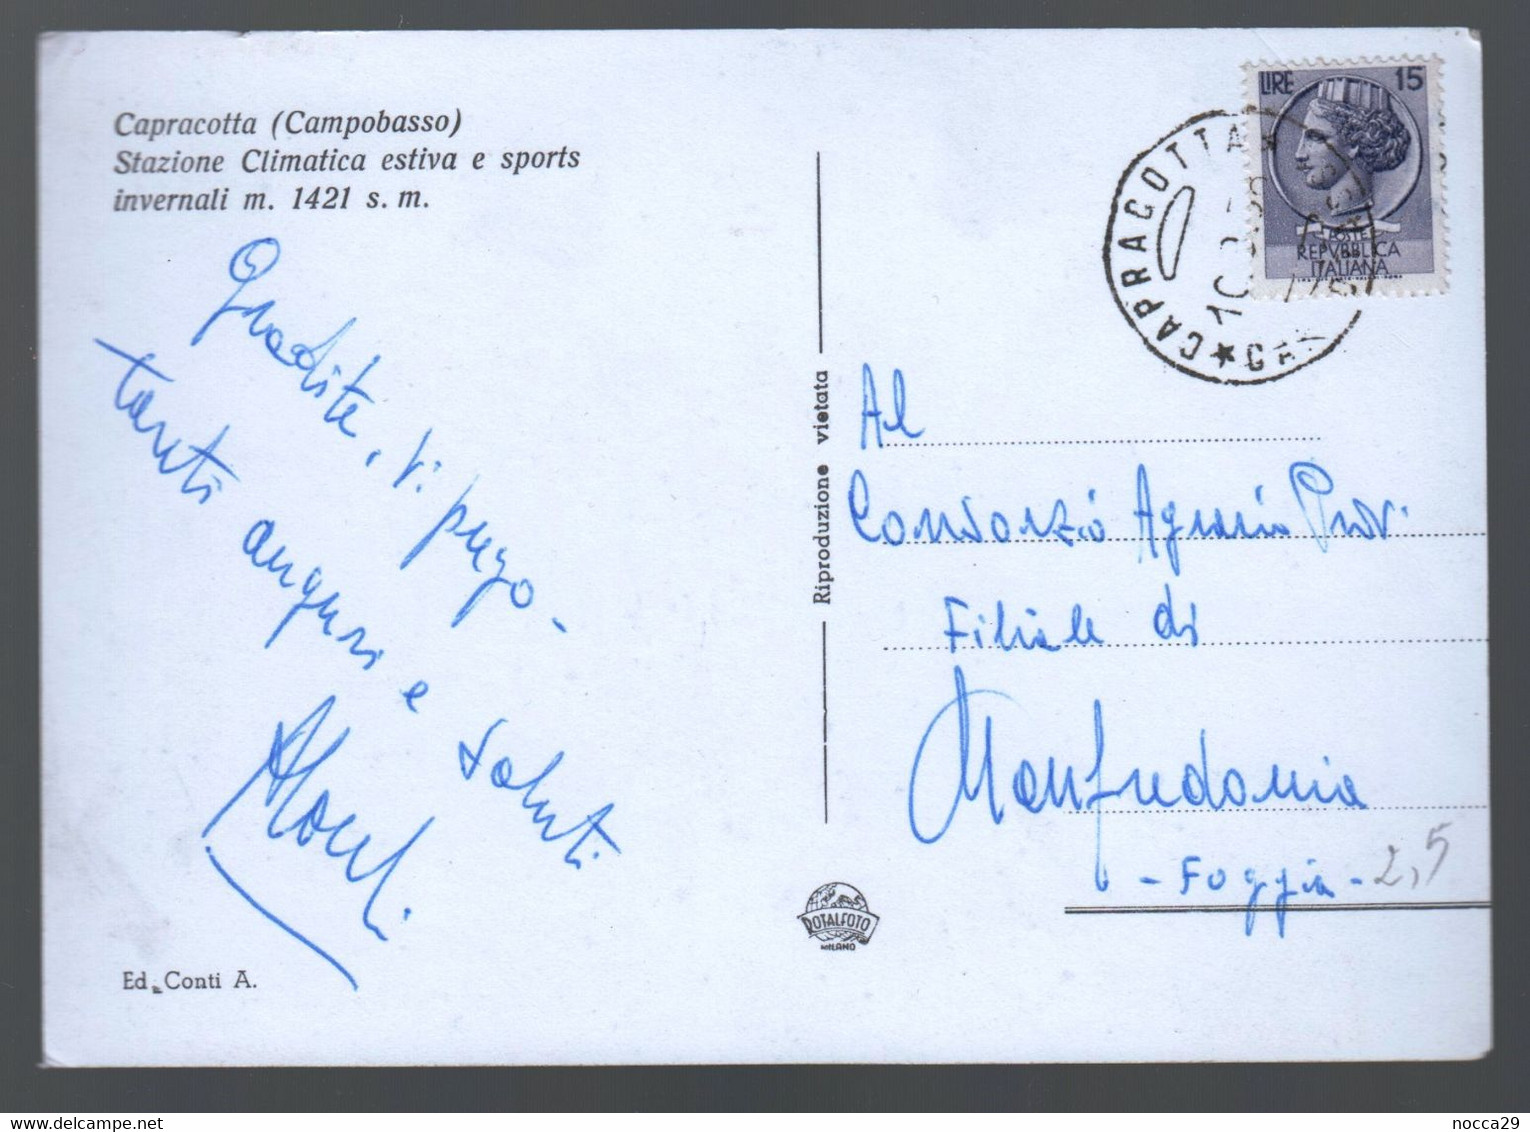 Capracotta (Campobasso)
Stazione Climatica estiva e sports
invernali m. 1421 s. m.
Gradite, Vi prego -
tanti auguri e saluti
Ed. Conti A.
Riproduzione vietata
ROTALFOTO
MILANO
LIRE 15
POSTE
REPVBBLICA
ITALIANA
CAPRACOTTA
Al
Consorzio Agrario Prov.
Filiale di
Manfredonia
- Foggia -
2,5
nocca29